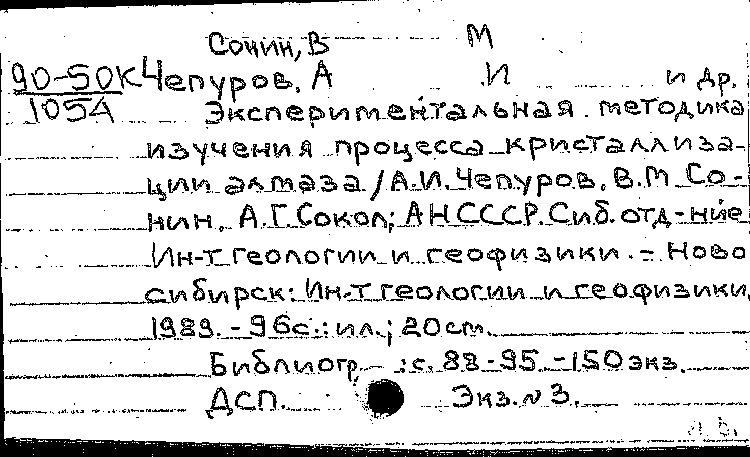 Сонин, В М
90-50К Чепуров, А И и др.
1054 Экспериментальная методика
изучения процесса кристаллиза-
ции алмаза / А.И. Чепуров, В.М Со-
нин, А.Г. Сокол; АН СССР. Сиб. отд-ние
Ин-т геологии и геофизики. - Ново
сибирск: Ин-т геологии и геофизики,
1989. - 96с.: ил.; 20см.
Библиогр. - : с. 88-95 - 150 экз.
ДСП. Экз. № 3.